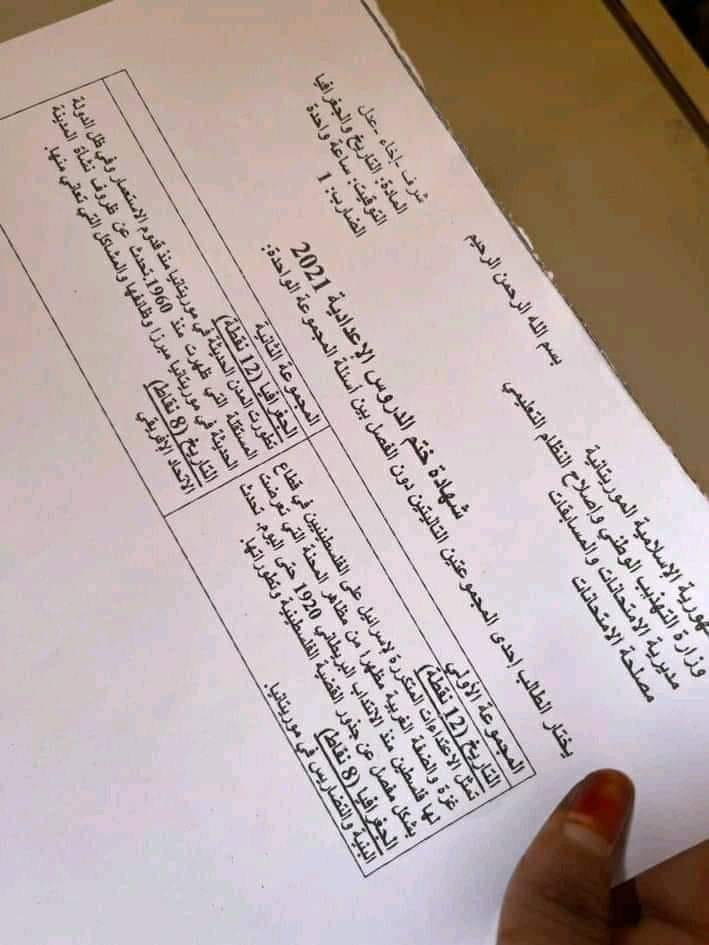 بسم الله الرحمن الرحيم
الجمهورية الإسلامية الموريتانية
وزارة التهذيب الوطني وإصلاح النظام التعليمي
مديرية الامتحانات والمسابقات
مصلحة الامتحانات
شرف -إخاء -عدل
المادة: التاريخ والجغرافيا
التوقيت: ساعة واحدة
الضارب: 1
شهادة ختم الدروس الاعدادية 2021
يختار الطالب إحدى المجموعتين التاليتين دون الفصل بين أسئلة المجموعة الواحدة:
المجموعة الأولى
التاريخ (12 نقطة)
تمثل الاعتداءات المتكررة لإسرائيل على الفلسطينيين في قطاع
غزة والضفة الغربية مظهرا من مظاهر المحنة التي تعرضت
لها فلسطين منذ الانتداب البريطاني 1920 حتى اليوم. تحدث
بشكل مفصل عن جذور القضية الفلسطينية وتطوراتها.
الجغرافيا (8 نقاط)
البنية والتضاريس في موريتانيا.
المجموعة الثانية
الجغرافيا (12 نقطة)
تطورت المدن الحديثة في موريتانيا منذ قدوم الاستعمار وفي ظل الدولة
المستقلة التي ظهرت منذ 1960. تحدث عن ظروف نشأة المدينة
الحديثة في موريتانيا مبرزا وظائفها والمشاكل التي تعاني منها.
التاريخ (8 نقاط)
الاتحاد الإفريقي